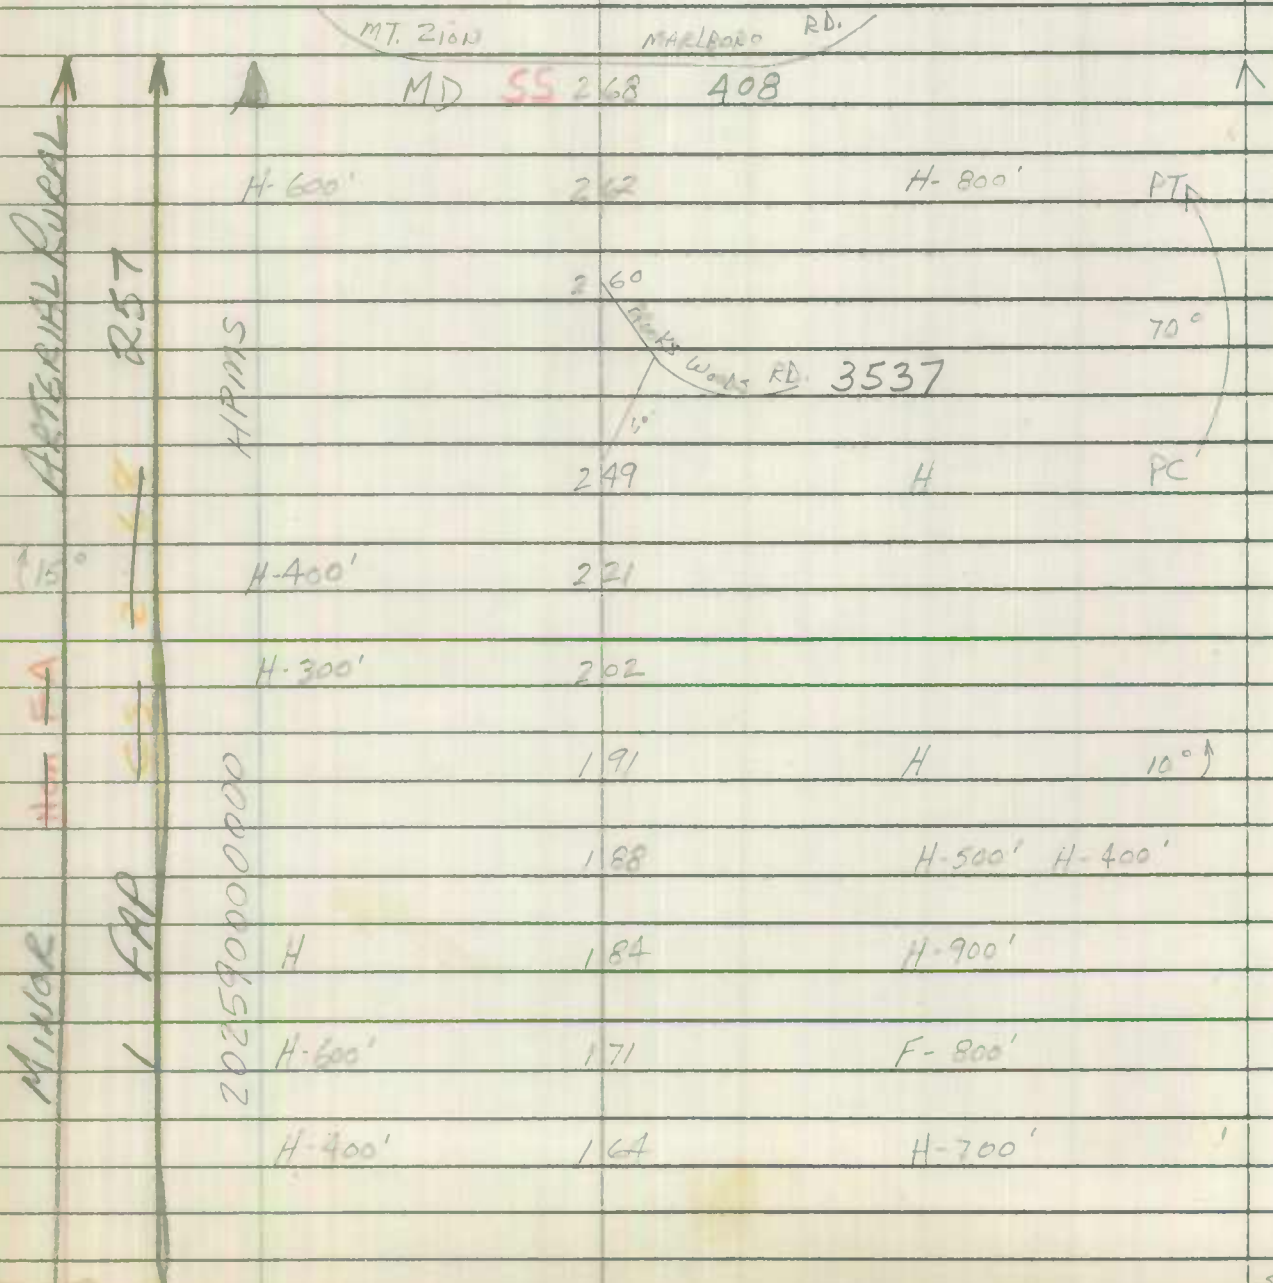 MT. ZION MARLBORO RD.
MD SS 268 408
H-600' 262 H-800' PT
260
Woods RD. 3537
70°
249 H PC
15° H-400' 221
H-300' 202
191 H 10°
188 H-500' H-400'
H 184 H-900'
H-600' 171 F-800'
H-400' 164 H-700'
MINOR ARTERIAL RURAL
FAP 257
HPMS